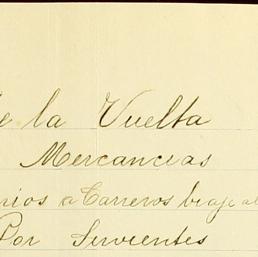 de la Vuelta
Mercancias
a Carreros
Por Sirvientes